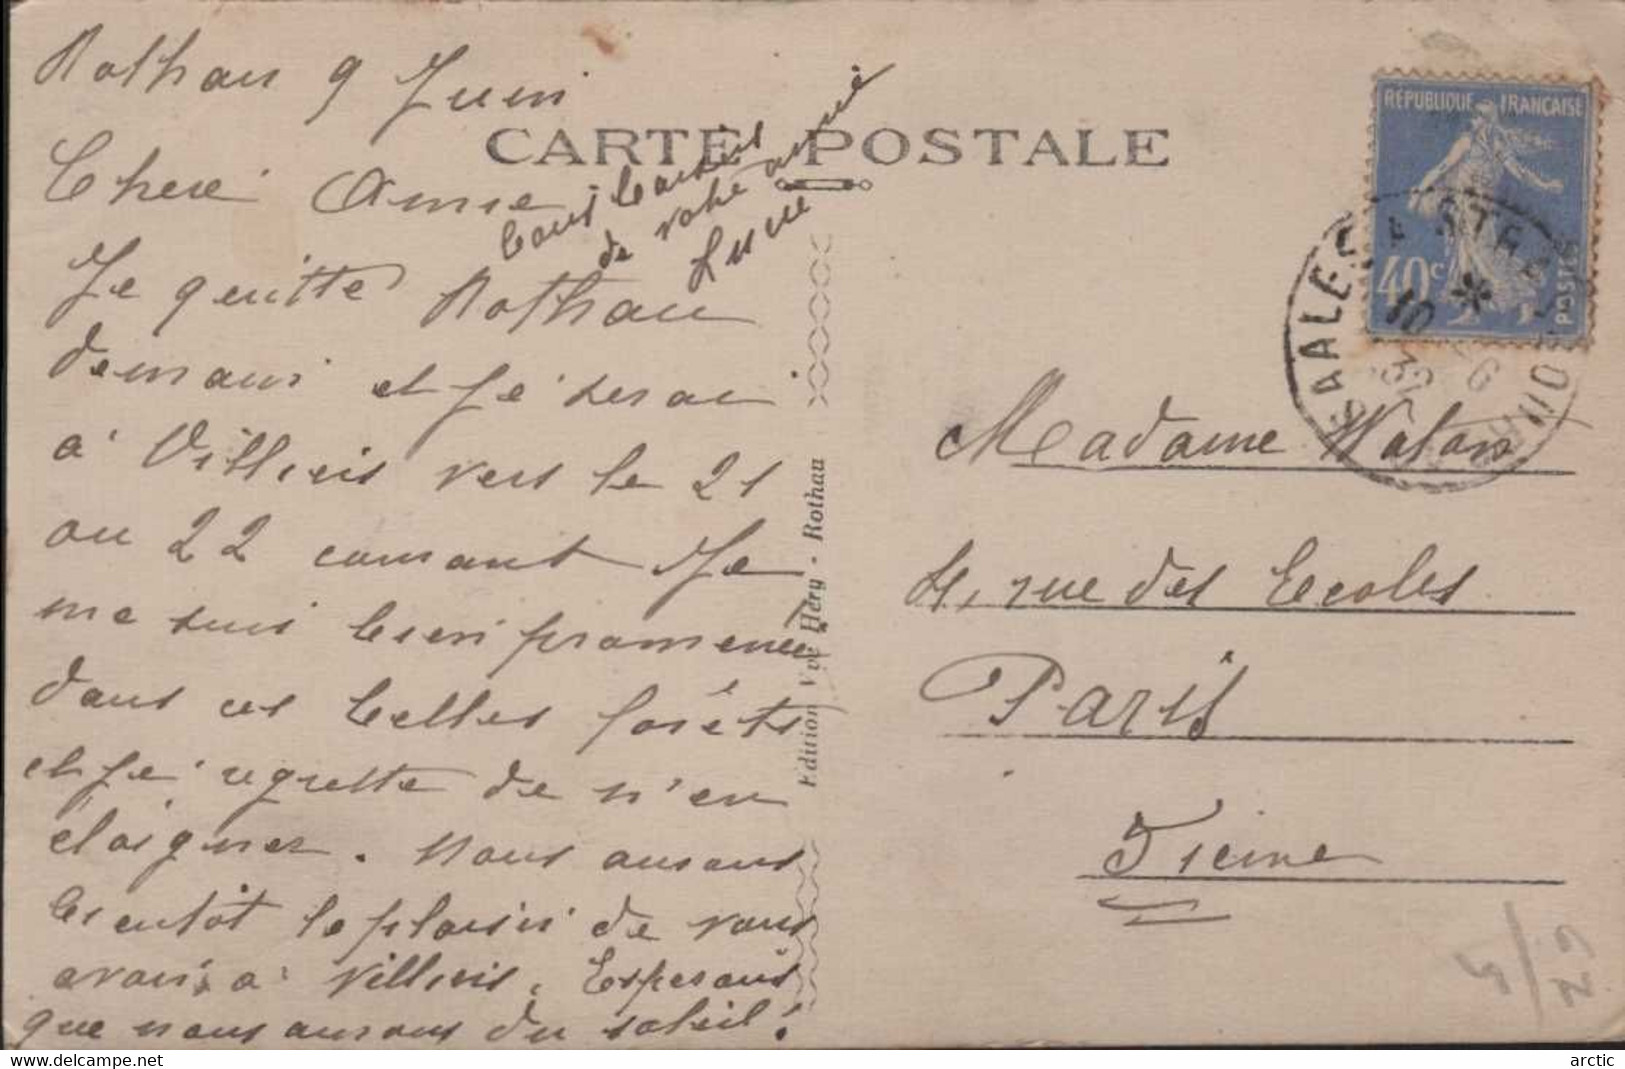 Rothau 9 Juin
CARTE POSTALE
Chere Amie
Je quitte Rothau
demain et je serai
à Villiers vers le 21
ou 22 courant Je
me suis bien promenée
dans ces belles forêts
et je regrette de n'en
éloigner. Nous aurons
bientôt le plaisir de vous
avoir à Villiers. Esperons
que nous aurons du soleil!
de votre amie
Edition Vve Héry - Rothau
RÉPUBLIQUE FRANÇAISE
40c
POSTES
SAALES A STR
10
Madame Waton
4, rue des Ecoles
Paris
Seine
5/29
delcampe.net
arctic